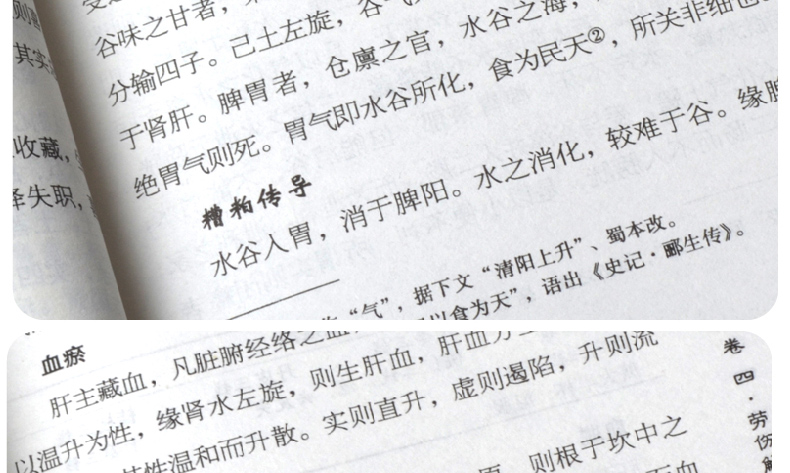 则
其实
收藏，
失职，
谷味之甘者，
分输四子。己土左旋，谷气
于肾肝。脾胃者，仓廪之官，水谷之海，
绝胃气则死。胃气即水谷所化，食为民天②，所关非细也
糟粕传导
水谷入胃，消于脾阳。水之消化，较难于谷。缘脾
“气”，据下文“清阳上升”、蜀本改。
以食为天”，语出《史记·郦生传》。
血瘀
肝主藏血，凡脏腑经络之血，
以温升为性，缘肾水左旋，则生肝血，肝血
其性温和而升散。实则直升，虚则遏陷，升则流
则根于坎中之
卷四·劳伤解